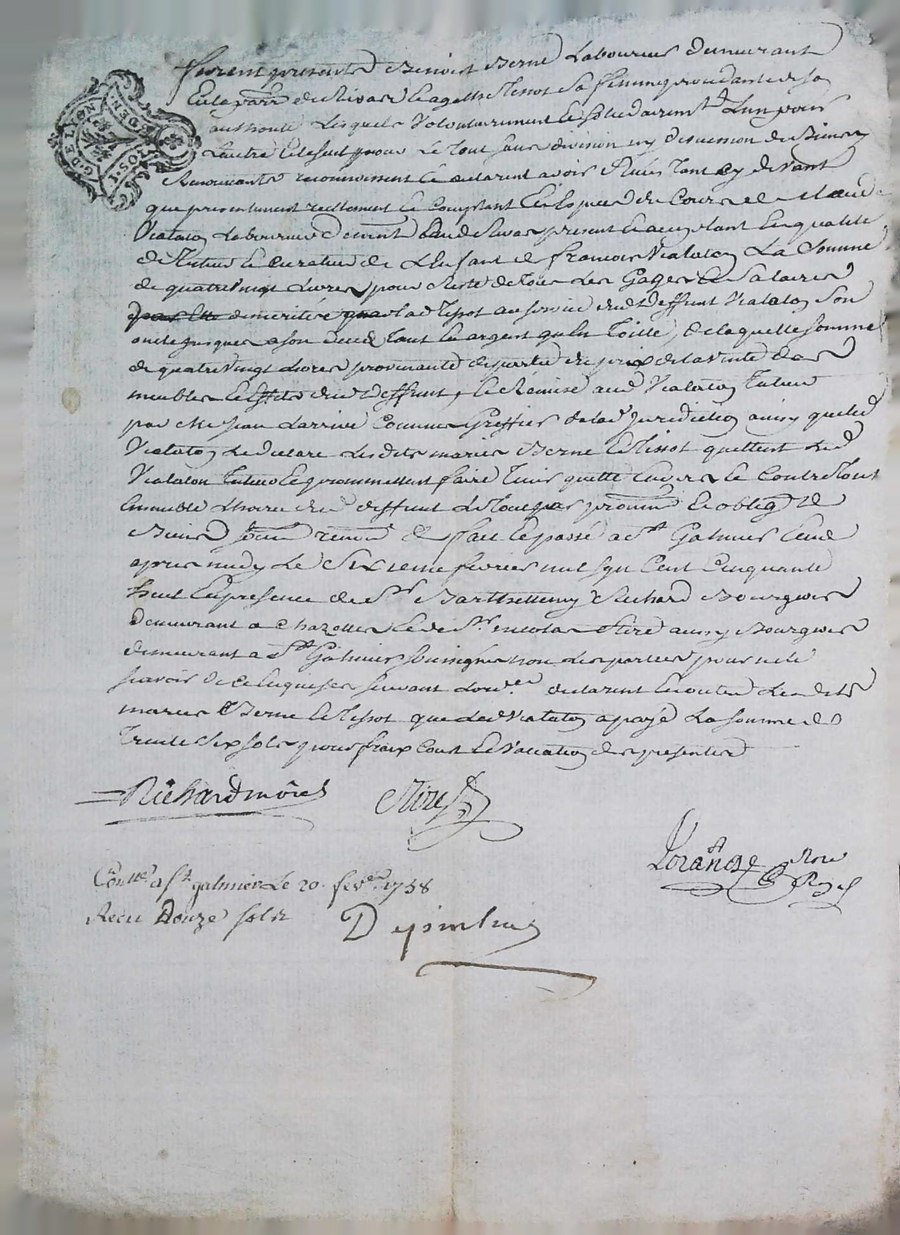 G. DE LION
I. SOL 8 DEN
furent presents Benoist Berne Laboureur demeurant
En la parr de Rivas Et agathe Tissot Sa femme procedante de Sa
authorité Lesquels Volontairement Et solidairemt L'un pour
Lautre Et le seul pour Le Tout sans division ny discusion de Biens
Renoncants reconnoissent Et declarent avoir Receu Tant cy devant
que presentement reellement Et Comptant En Especes de Cours de
Vialaton Laboureur demeurt present Et acceptant En qualité
de Tuteur Et curateur de L'Enfant de francois Vialaton La Somme
de quatrevingt Livres pour Reste de Tous Les Gages Et Salaires
merités lad Tissot au service dud Deffunt Vialaton Son
oncle jusques a son deced Tant En argent qu'en Toille, de laquelle somme
de quatre Vingt Livres provenante de partie du prix de la Vente des
meubles Et Effets dud Deffunt, Et Remise aud Vialaton Tuteur
par Me Jean Larrivé Commis Greffier de lad Juridiction ainsy que led
Vialaton Le declare Lesdits mariés Berne Et Tissot quittent Led
Vialaton Tuteur Et promettent faire Tenir quitte Envers Et Contre Tous
Ensemble L'hoirie dud deffunt De Tout par promes Et oblign de
Biens renon fait Et passé a St Galmier Etude
apres midy Le Sixieme fevrier mil sept Cent Cinquante
huit En presence de Sr Barthelemy Richard Bourgeois
demeurant a Chazelles Et de Sr nicolas Mire aussy Bourgeois
demeurant a St Galmier Soussignes non Les parties pour ne le
scavoir de ce Enquises suivant Lordce declarent En outre Lesdits
mariés Berne Et Tissot que Led Vialaton a payé La somme de
Trente Six sols pour fraix Cout Et Vacation des presentes
Richard
Contlé a St galmier Le 20 fevr 1758
Receu Douze sols